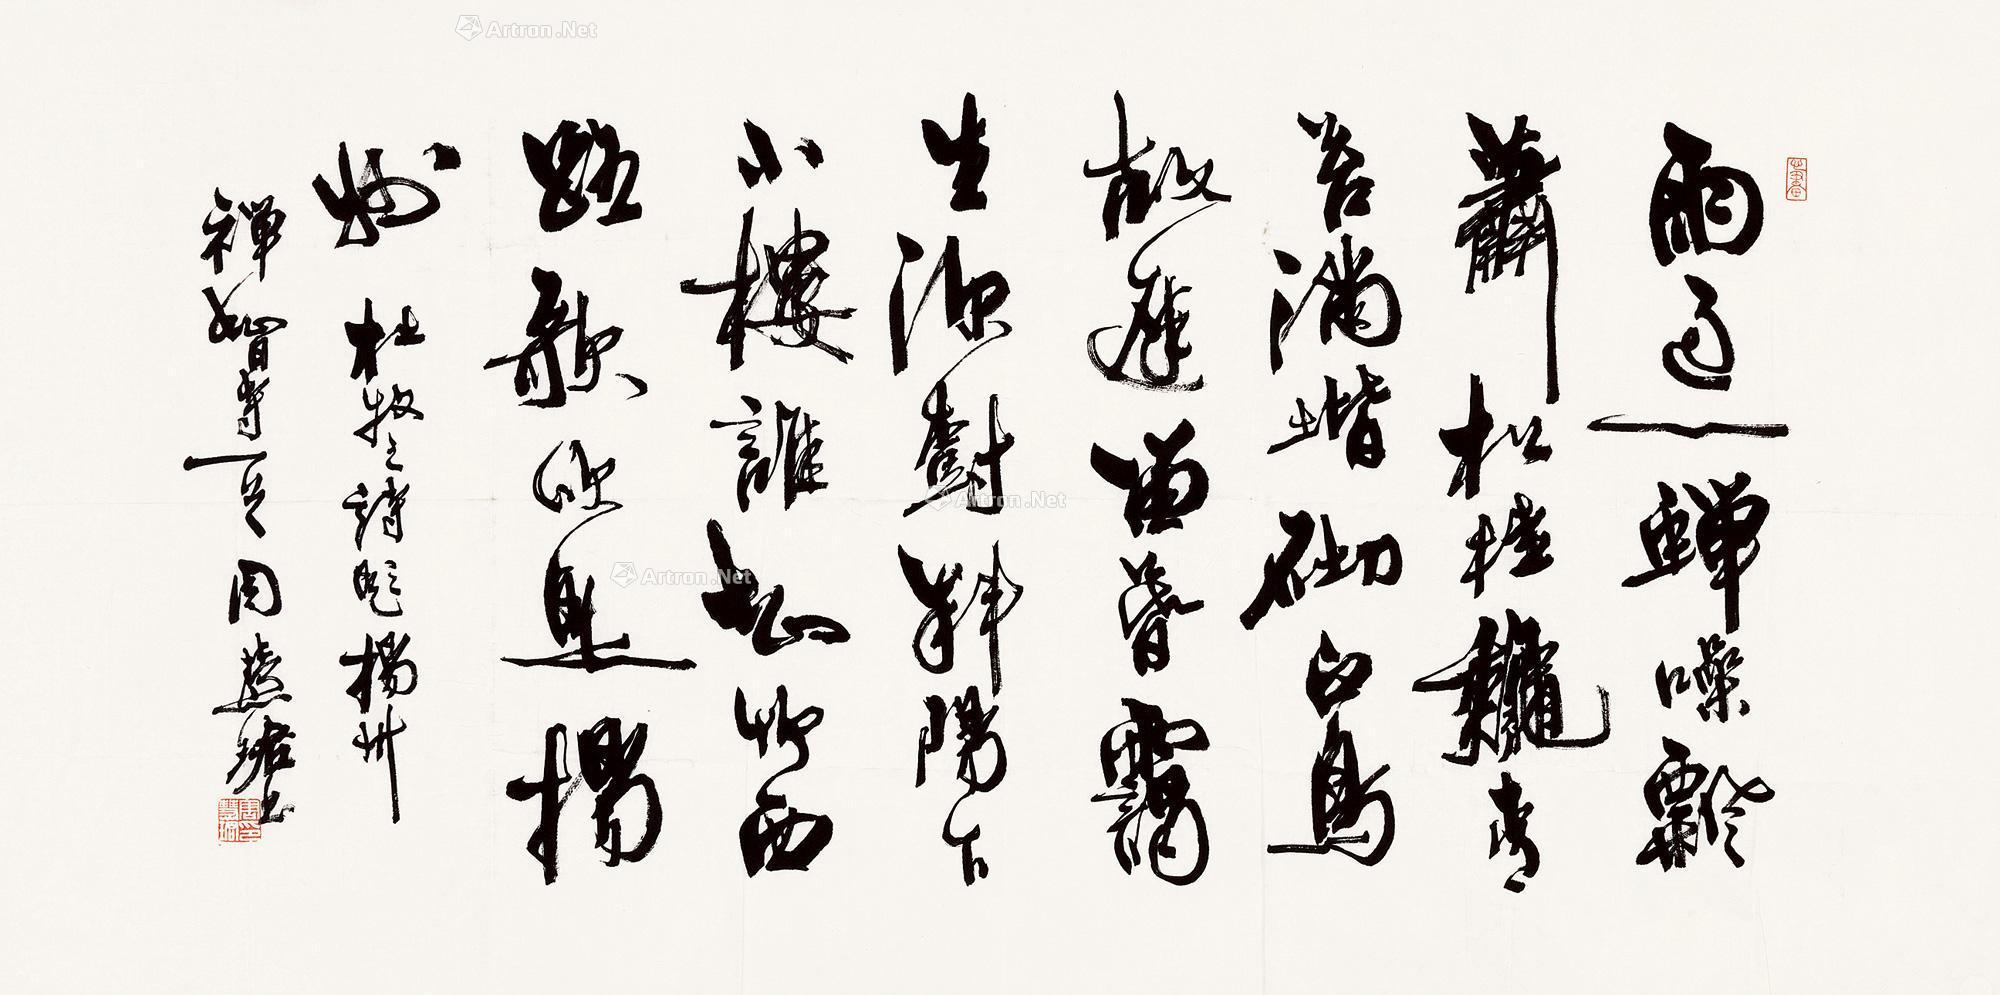 雨過一蟬噪飄
蕭松桂龝青
苔滿階砌白鳥
故遲留暮靄
生深樹斜陽下
小樓誰知竹西
路歌吹是揚
州 杜牧之詩題揚州
禪智寺一首 周慧珺書
Artron.Net
Artron.Net
Artron.Net